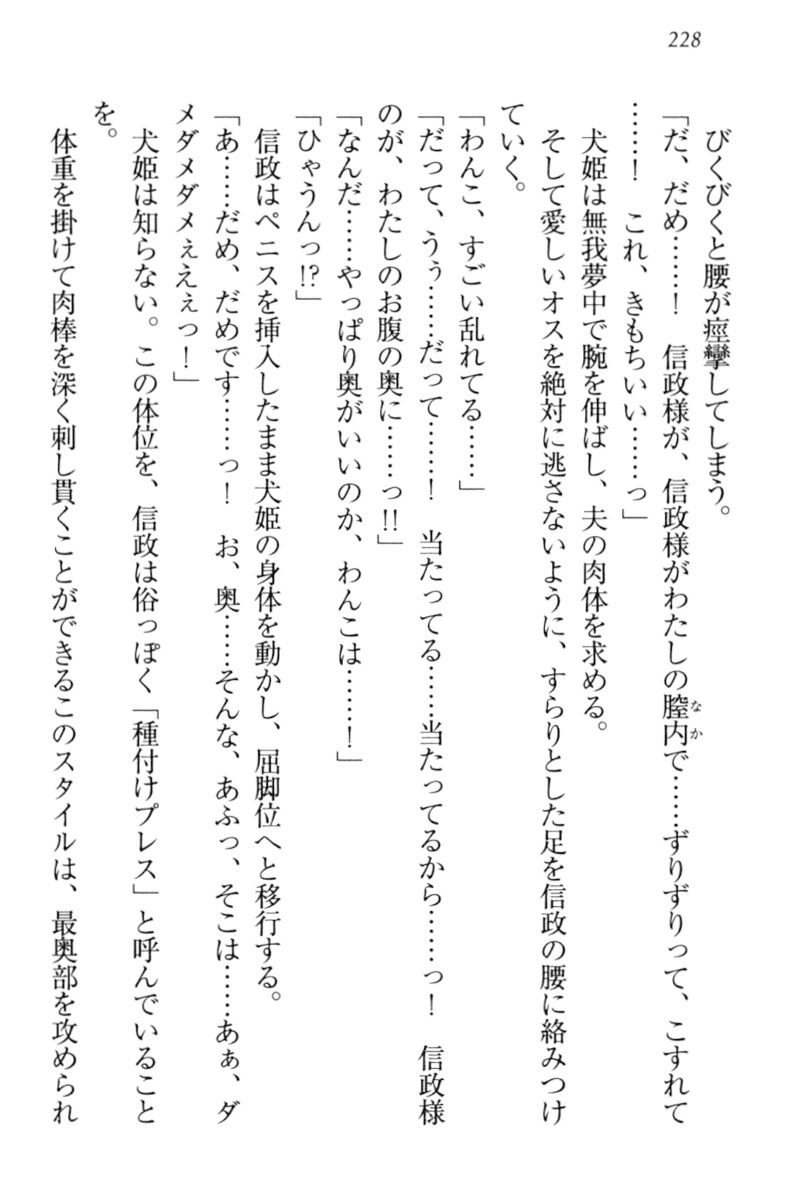 228
びくびくと腰が痙攣してしまう。
「だ、だめ……！　信政様が、信政様がわたしの膣内で……ずりずりって、こすれて
……！　これ、きもちいい……っ」
犬姫は無我夢中で腕を伸ばし、夫の肉体を求める。
そして愛しいオスを絶対に逃さないように、すらりとした足を信政の腰に絡みつけ
ていく。
「わんこ、すごい乱れてる……」
「だって、うぅ……だって……！　当たってる……当たってるから……っ！　信政様
のが、わたしのお腹の奥に……っ!!」
「なんだ……やっぱり奥がいいのか、わんこは……！」
「ひゃうんっ!?」
信政はペニスを挿入したまま犬姫の身体を動かし、屈脚位へと移行する。
「あ……だめ、だめです……っ！　お、奥……そんな、あふっ、そこは……あぁ、ダ
メダメダメぇえぇっ！」
犬姫は知らない。この体位を、信政は俗っぽく「種付けプレス」と呼んでいること
を。
体重を掛けて肉棒を深く刺し貫くことができるこのスタイルは、最奥部を攻められ
なか